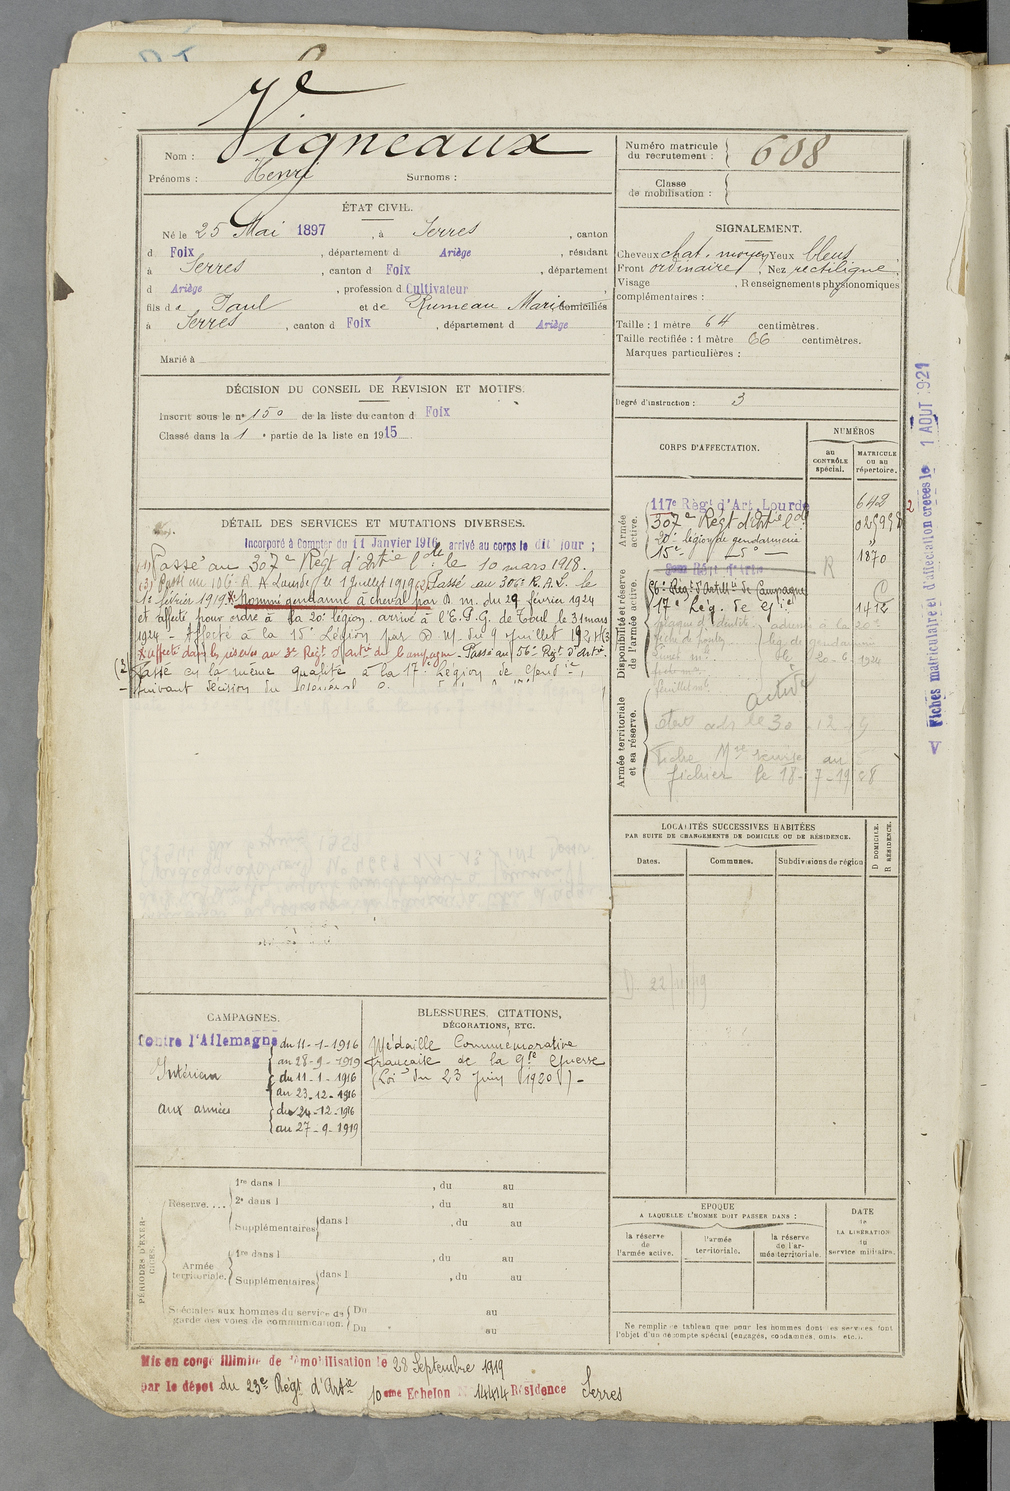 Vigneaux
Nom :
Prénoms : Henri Surnoms :
Numéro matricule
du recrutement : 608
Classe
de mobilisation :
ÉTAT CIVIL.
Né le 25 Mai 1897, à Serres, canton
d Foix, département d Ariège, résidant
à Serres, canton d Foix, département
d Ariège, profession d Cultivateur
fils de Paul et de Rumeau Marie domiciliés
à Serres, canton d Foix, département d Ariège
Marié à
SIGNALEMENT.
Cheveux chat. moyen Yeux bleus
Front ordinaire, Nez rectiligne
Visage, Renseignements physionomiques
complémentaires :
Taille : 1 mètre 64 centimètres.
Taille rectifiée : 1 mètre 66 centimètres.
Marques particulières :
Degré d'instruction : 3
DÉCISION DU CONSEIL DE RÉVISION ET MOTIFS.
Inscrit sous le n° 150 de la liste du canton d Foix
Classé dans la 1e partie de la liste en 1915
DÉTAIL DES SERVICES ET MUTATIONS DIVERSES.
Incorporé à Compter du 11 Janvier 1916, arrivé au corps le dit jour ;
Passé au 307e Régt d'Artie lde le 10 mars 1918.
Passé au 306e R.A.L. le
1e février 1919 * Nommé gendarme à cheval par D. m. du 29 février 1924
et affecté pour ordre à la 20e légion. arrivé à l'E.P.G. de Toul le 31 mars
1924 - Affecté à la 15e Légion par D. M. du 9 Juillet 1924
Passé au 56e Régt d'Artie
Passé en la même qualité à la 17e Légion de Gendie,
suivant décision du
CORPS D'AFFECTATION.
NUMÉROS
au
CONTRÔLE
spécial.
MATRICULE
ou au
répertoire.
Armée
active.
117e Régt d'Art. Lourde 642
307e Régt d'Artie lde
20e légion de gendarmerie "
15e — d° — 1870
Disponibilité et réserve
de l'armée active.
R
56e Régt d'Artillie de Campagne C
17e Lég. de Gie 1412
20-6-1924
active
Armée territoriale
et sa réserve.
le 30-12-
Fiche Mle remise au
fichier le 18-7-1928
Fiches matriculaire et d'affectation créées le 1 AOUT 1921
V
LOCALITÉS SUCCESSIVES HABITÉES
PAR SUITE DE CHANGEMENTS DE DOMICILE OU DE RÉSIDENCE.
Dates. Communes. Subdivisions de région
D DOMICILE.
R RÉSIDENCE.
CAMPAGNES.
Contre l'Allemagne du 11-1-1916
au 28-9-1919
Intérieur du 11-1-1916
au 23-12-1916
aux armées du 24-12-1916
au 27-9-1919
BLESSURES, CITATIONS,
DÉCORATIONS, ETC.
Médaille Commémorative
française de la Gde Guerre
(Loi du 23 Juin 1920) -
PÉRIODES D'EXER-
CICES.
Réserve....
1re dans l , du au
2e dans l , du au
Supplémentaires dans l , du au
Armée
territoriale.
1re dans l , du au
Supplémentaires dans l , du au
Spéciales aux hommes du service de
garde des voies de communication.
Du au
Du au
EPOQUE
A LAQUELLE L'HOMME DOIT PASSER DANS :
la réserve
de
l'armée active.
l'armée
territoriale.
la réserve
de l'ar-
mée territoriale.
DATE
de
LA LIBÉRATION
du
service militaire.
Ne remplir ce tableau que pour les hommes dont les services font
l'objet d'un décompte spécial (engagés, condamnés, omis, etc.).
Mis en congé illimité de démobilisation le 28 Septembre 1919
par le dépot du 23e Régt d'Artie 10eme Echelon N 14414 Résidence Serres